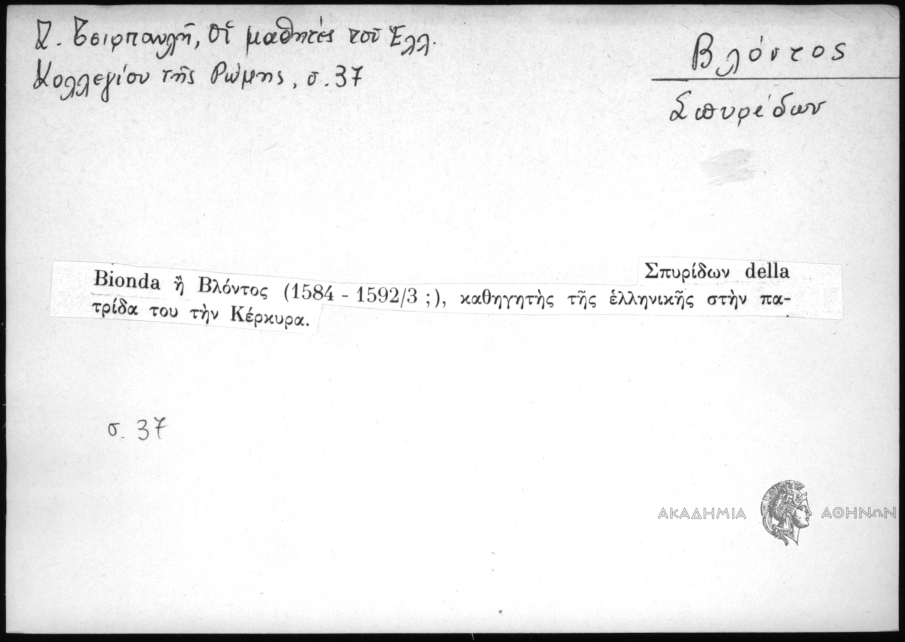 Ζ. Τσιρπανλῆ, Οἱ μαθητές τοῦ Ἑλλ.
Κολλεγίου τῆς Ρώμης, σ. 37
Βλόντος
Σπυρίδων
Σπυρίδων della
Bionda ἤ Βλόντος (1584 - 1592/3 ;), καθηγητὴς τῆς ἑλληνικῆς στὴν πα-
τρίδα του τὴν Κέρκυρα.
σ. 37
ΑΚΑΔΗΜΙΑ ΑΘΗΝΩΝ